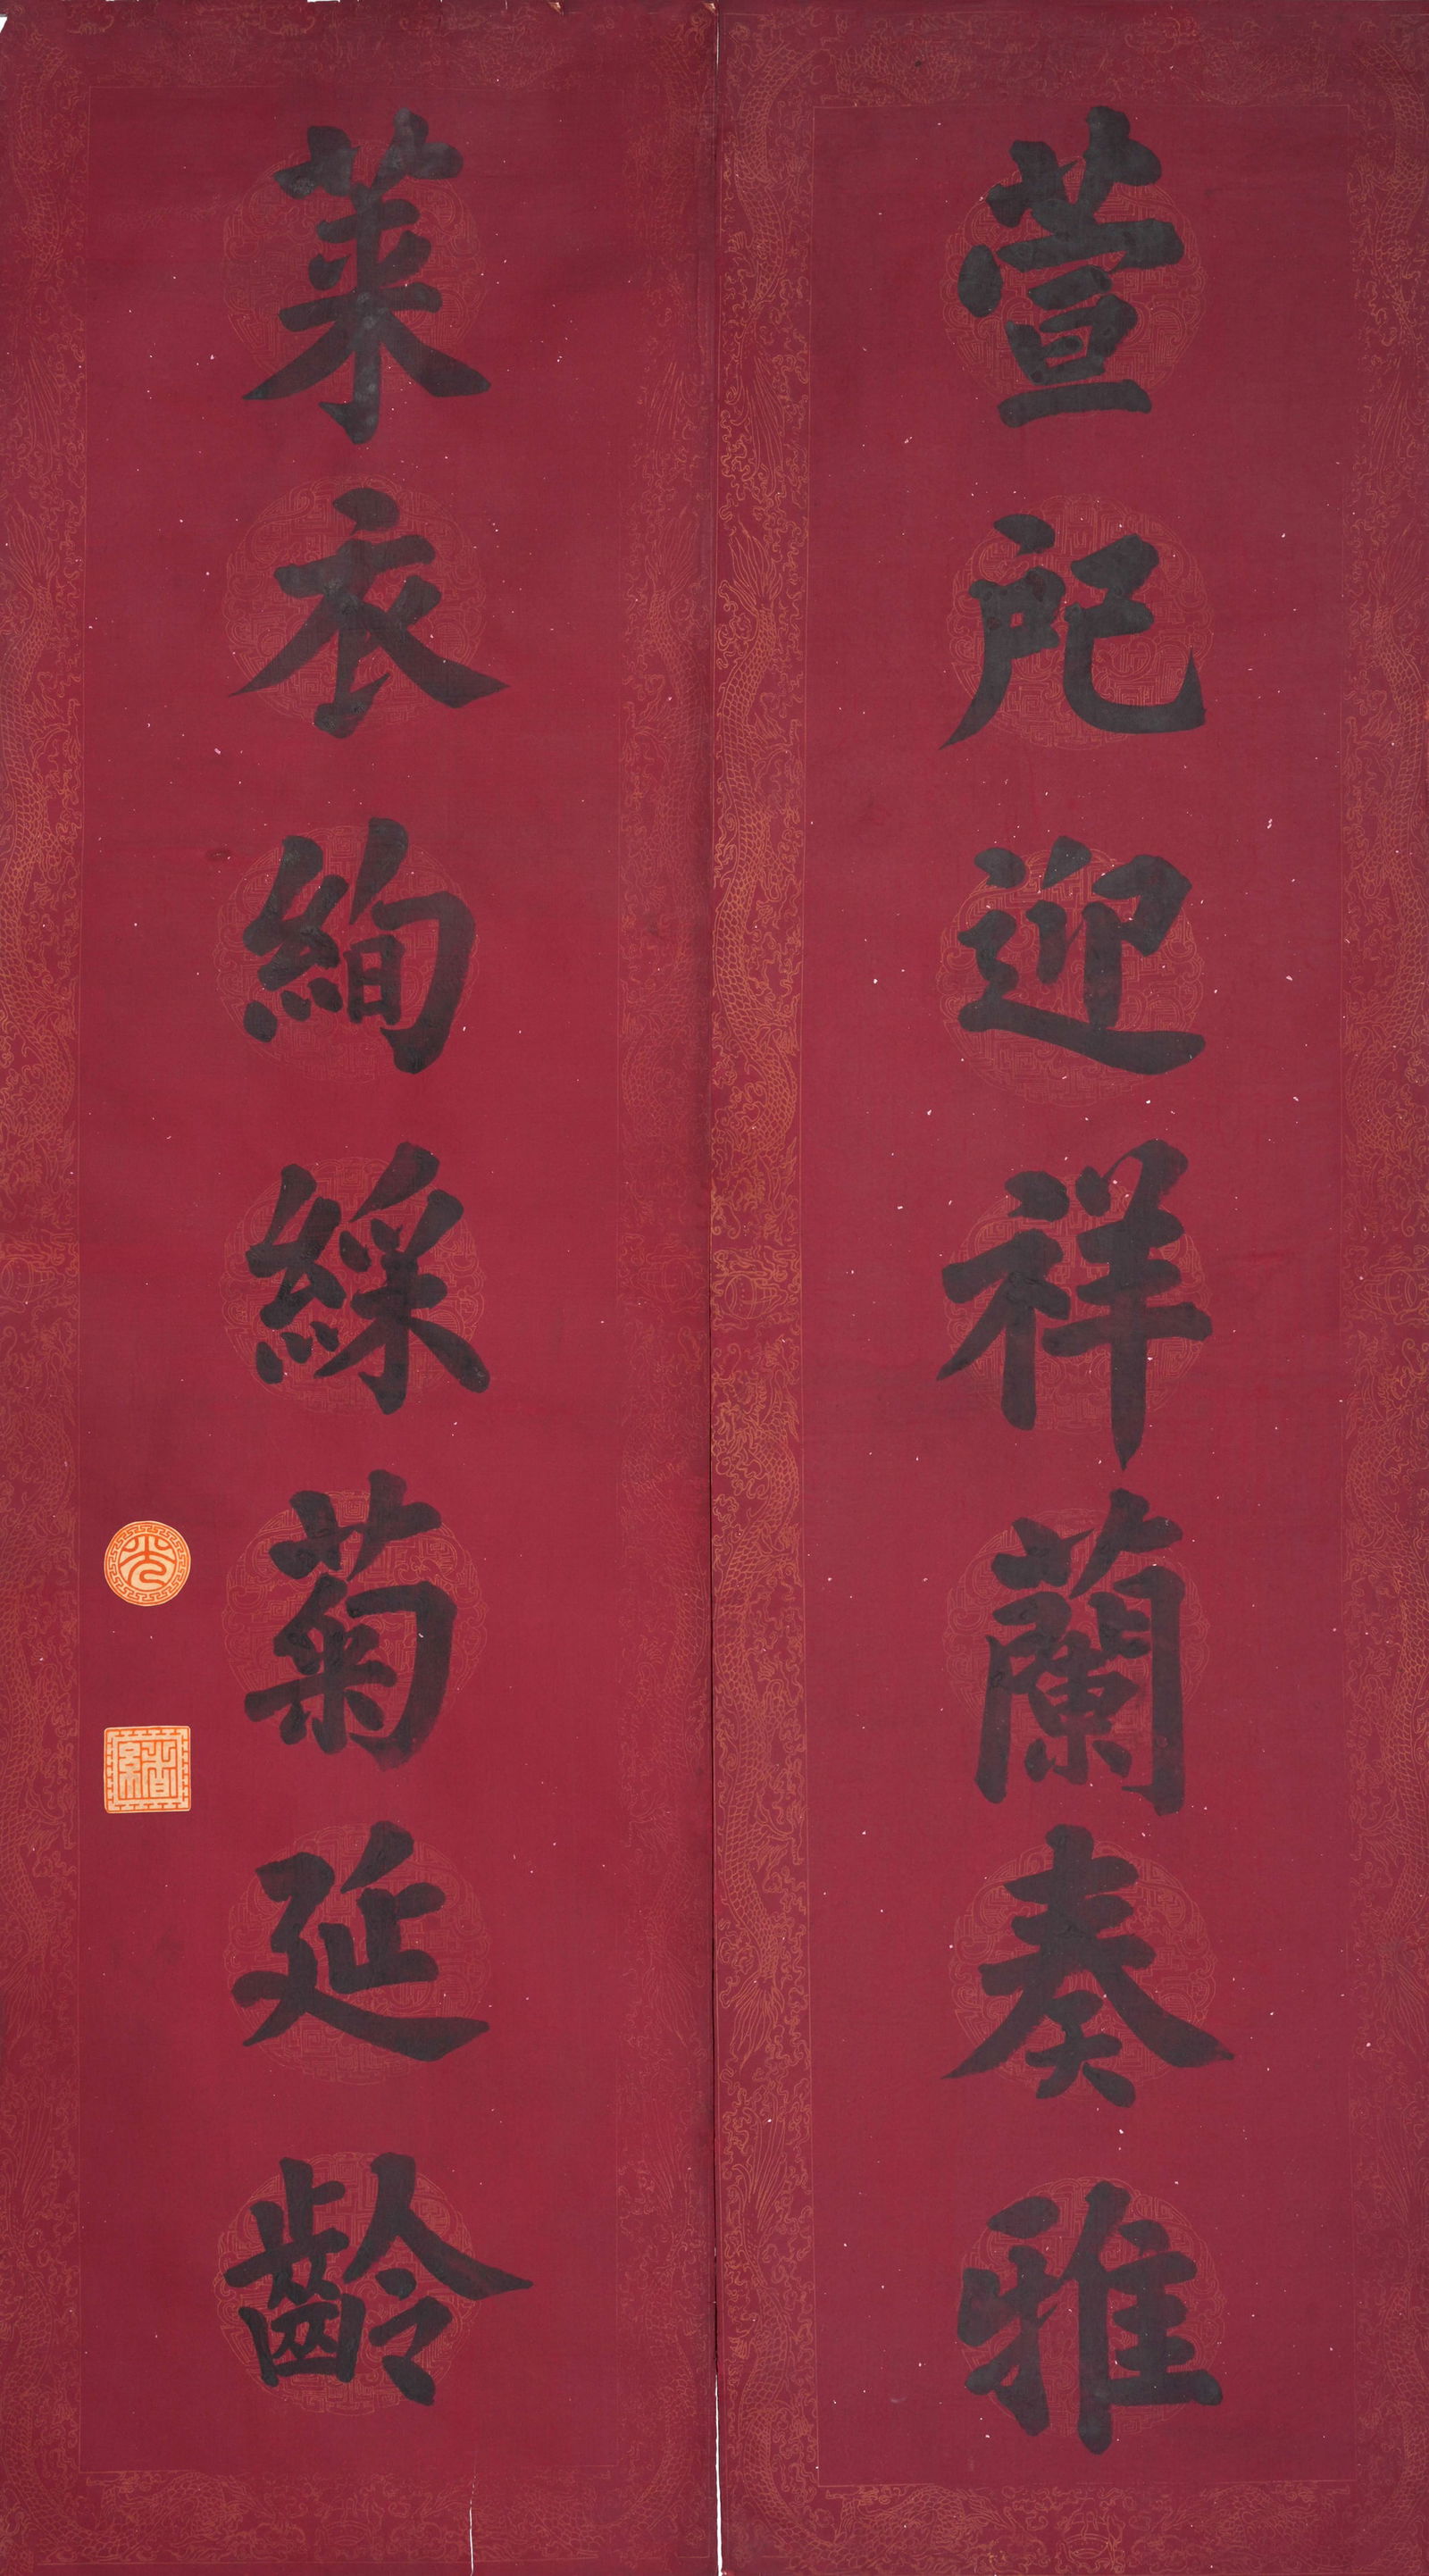 萱戺迎祥蘭奏雅
萊衣絢綵菊延齡
光
緒